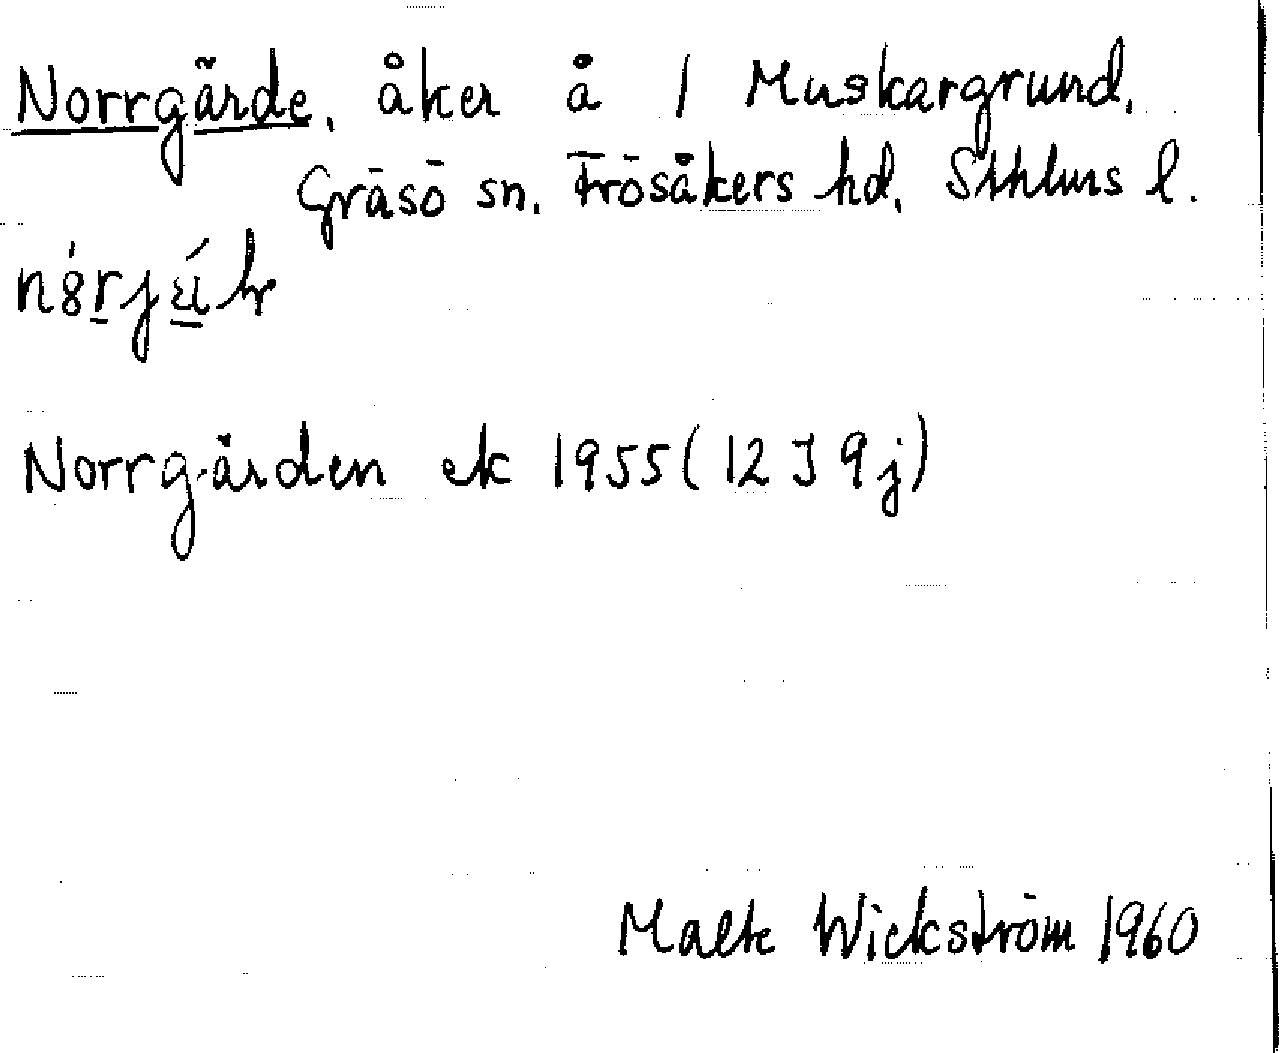 Norrgärde, åker å 1 Muskargrund,
Gräsö sn, Frösåkers hd, Sthlms l.
Norrgärden ek 1955 (12 I 9 j)
Malte Wickström 1960